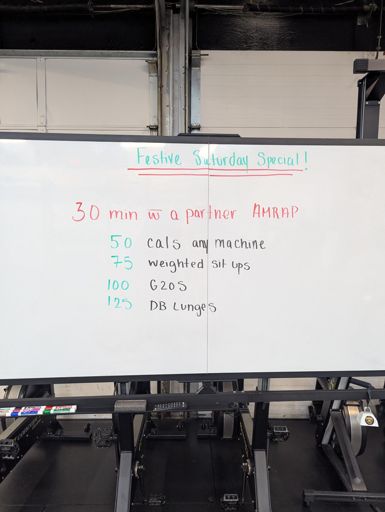 Festive Saturday Special!
30 min w̅ a partner AMRAP
50 cals any machine
75 weighted sit ups
100 G2OS
125 DB Lunges